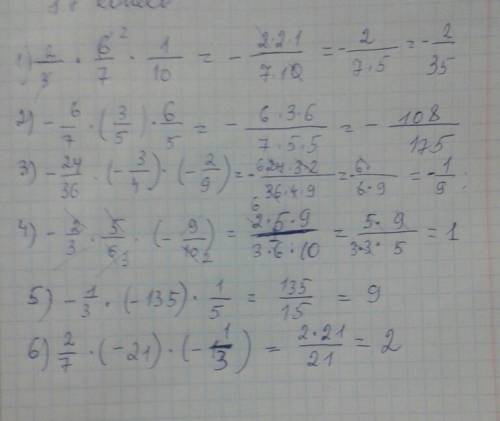 1) 2/3 · 6²/7 · 1/10 = - 2·2·1/7·10 = - 2/7·5 = - 2/35
2) - 6/7 · (3/5) · 6/5 = - 6·3·6/7·5·5 = - 108/175
3) - 24/36 · (- 3/4) · (- 2/9) = - 24·3·2/36·4·9 = 6/6·9 = - 1/9
4) - 2/3 · 5/6 · (- 9/10) = 2·5·9/3·6·10 = 5·9/3·3·5 = 1
5) - 1/3 · (-135) · 1/5 = 135/15 = 9
6) 2/7 · (-21) · (- 1/3) = 2·21/21 = 2